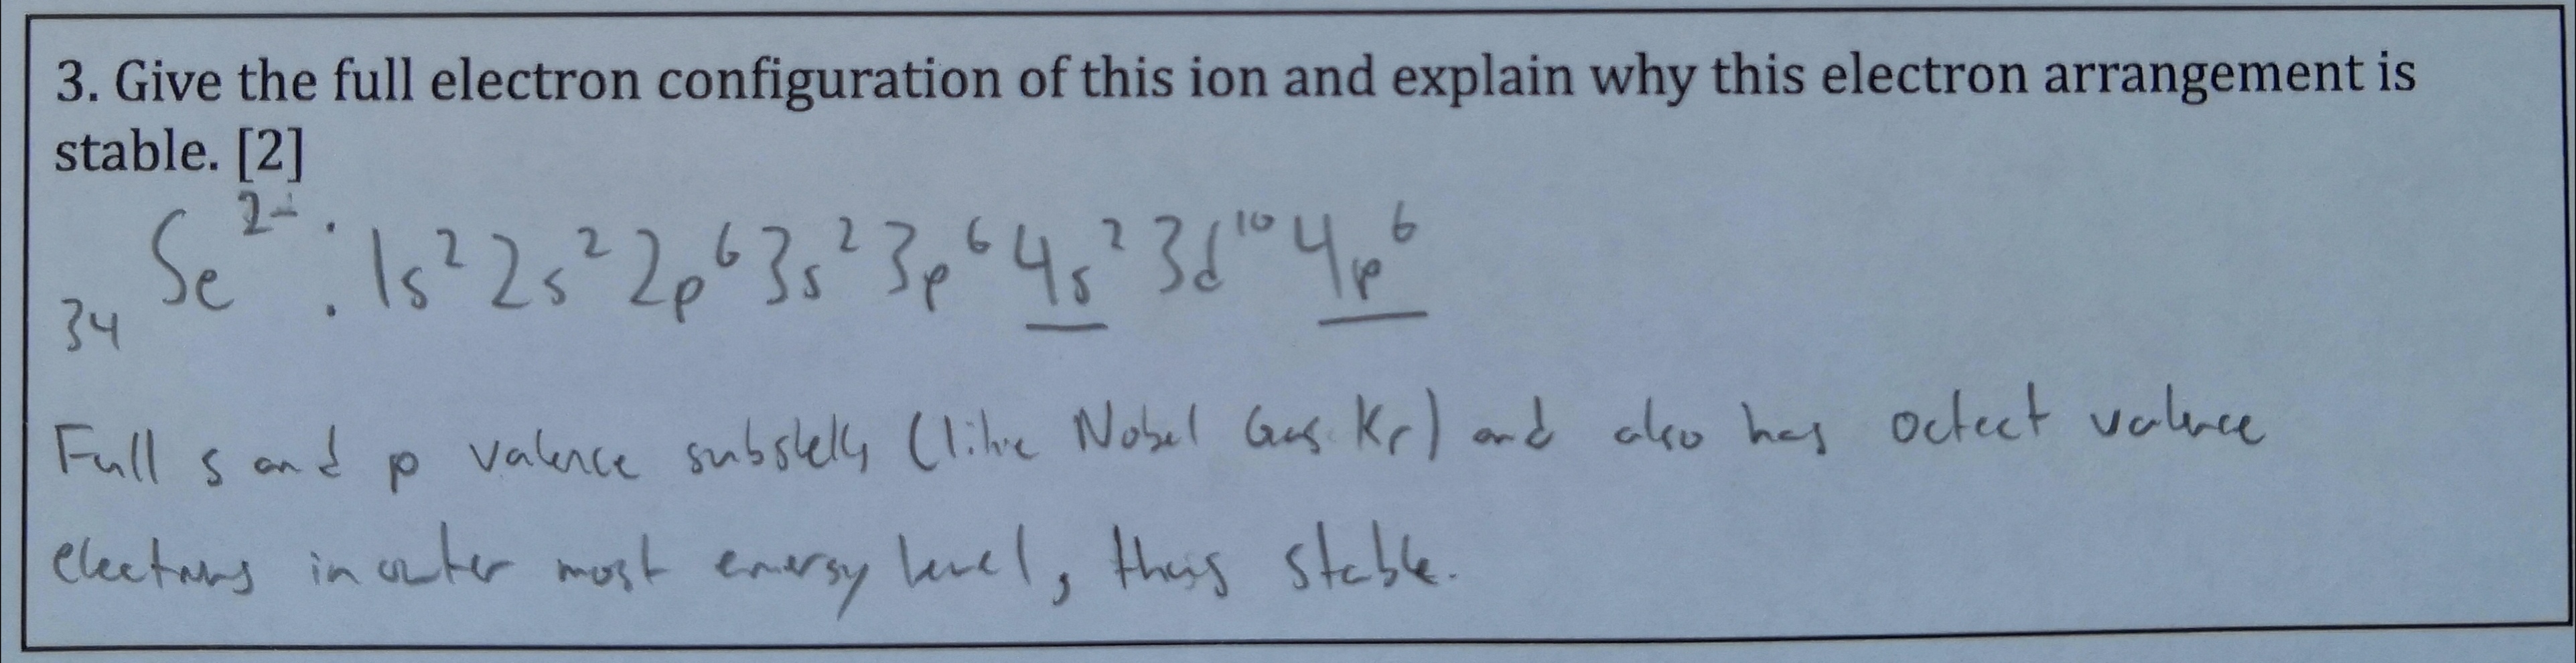 3. Give the full electron configuration of this ion and explain why this electron arrangement is
stable. [2]
₃₄Se²⁻ : 1s² 2s² 2p⁶ 3s² 3p⁶ 4s² 3d¹⁰ 4p⁶
Full s and p valence subshells (like Nobel Gas Kr) and also has octect valence
electrons in outer most energy level, thus stable.